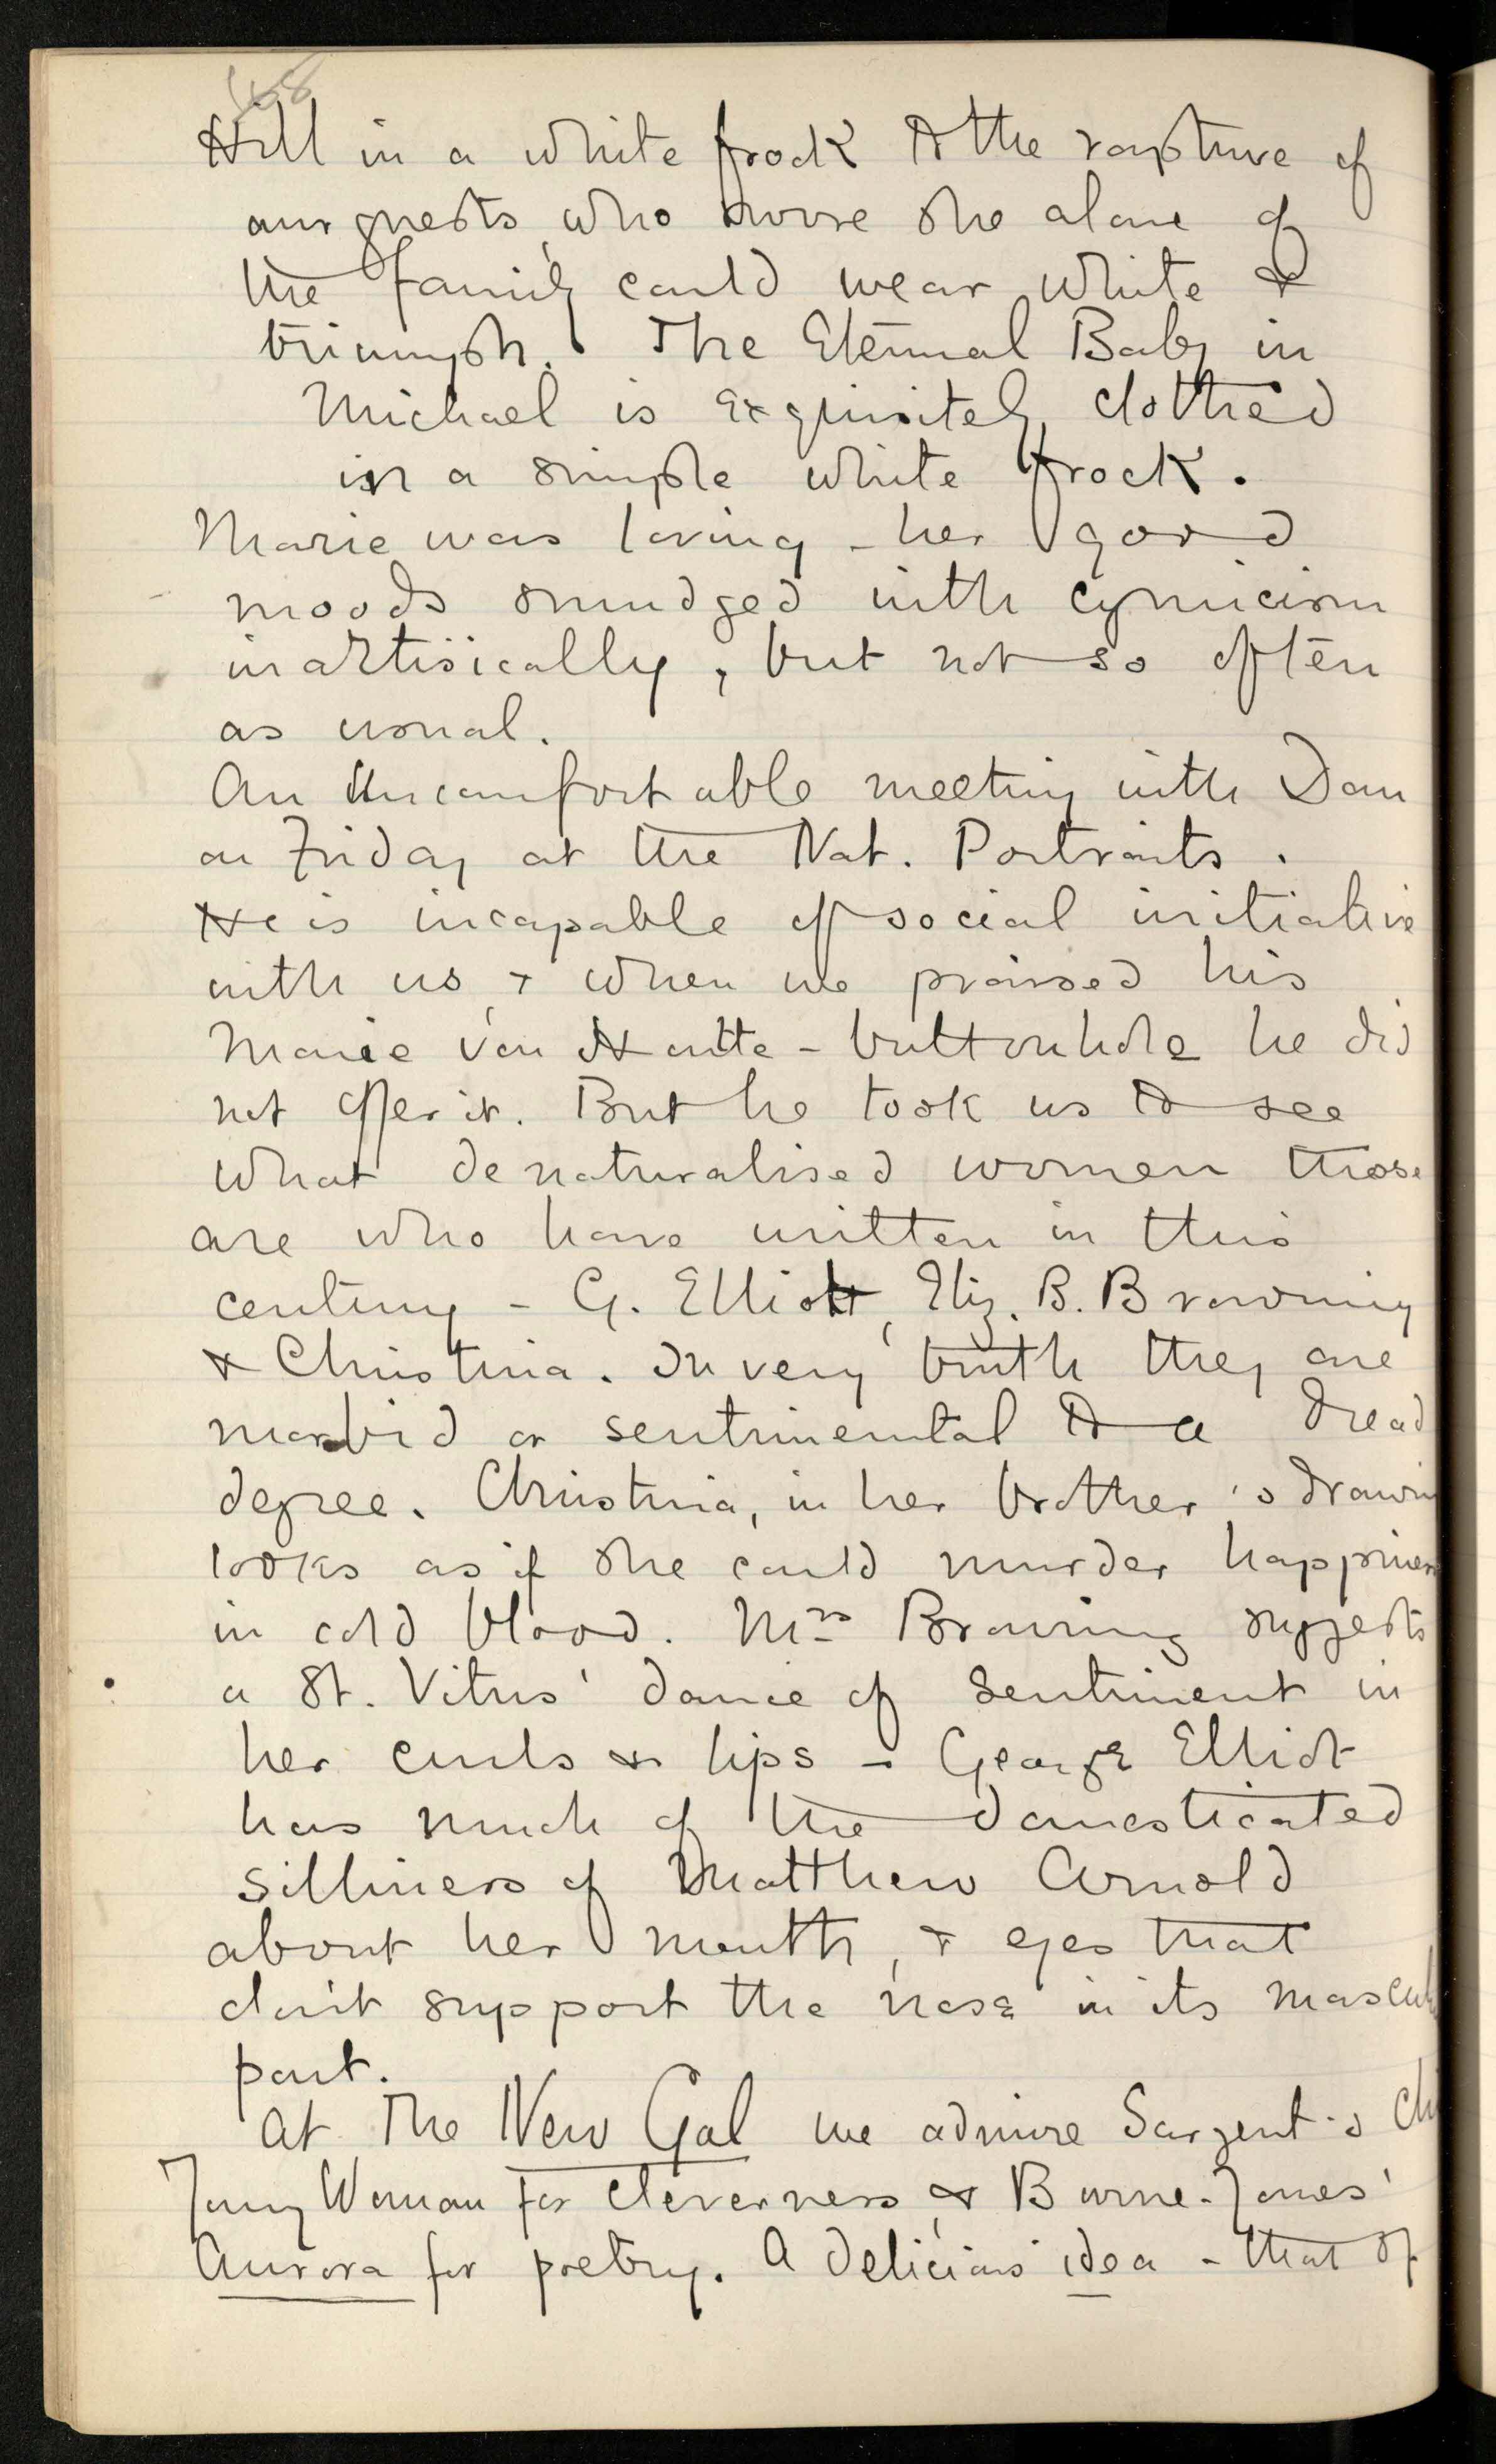 168
Hill in a white frock to the rapture of
our guests, who swore she alone of
the family could wear white &
triumph. The Eternal Baby in
Michael is exquisitely clothed
in a simple white frock.
Marie was loving - her good
moods smudged with cynicism
inartisically, but not so often
as usual.
An Uncomfortable meeting with Dan
on Friday at the Nat. Portraits.
He is incapable of social initiative
with us, & when we praised his
Marie van Houtte - buttonhole he did
not offer it. But he took us to see
what denaturalised women those
are who have written in this
century - G. Elliott, Eliz. B. Browning
& Christina. In very truth they are
morbid or sentimental to a dread
degree. Christina, in her brother's drawing
looks as if she could murder happiness
in cold blood. Mrs Browning suggests
a St. Vitus' dance of sentiment in
her curls & lips - George Elliot
has much of the domesticated
silliness of Matthew Arnold
about her mouth, & eyes that
don't support the nose in its mascul
part.
At The New Gal we admire Sargent's
Young Woman for cleverness, & Burne-Jones'
Aurora for poetry. A delicious idea - that of